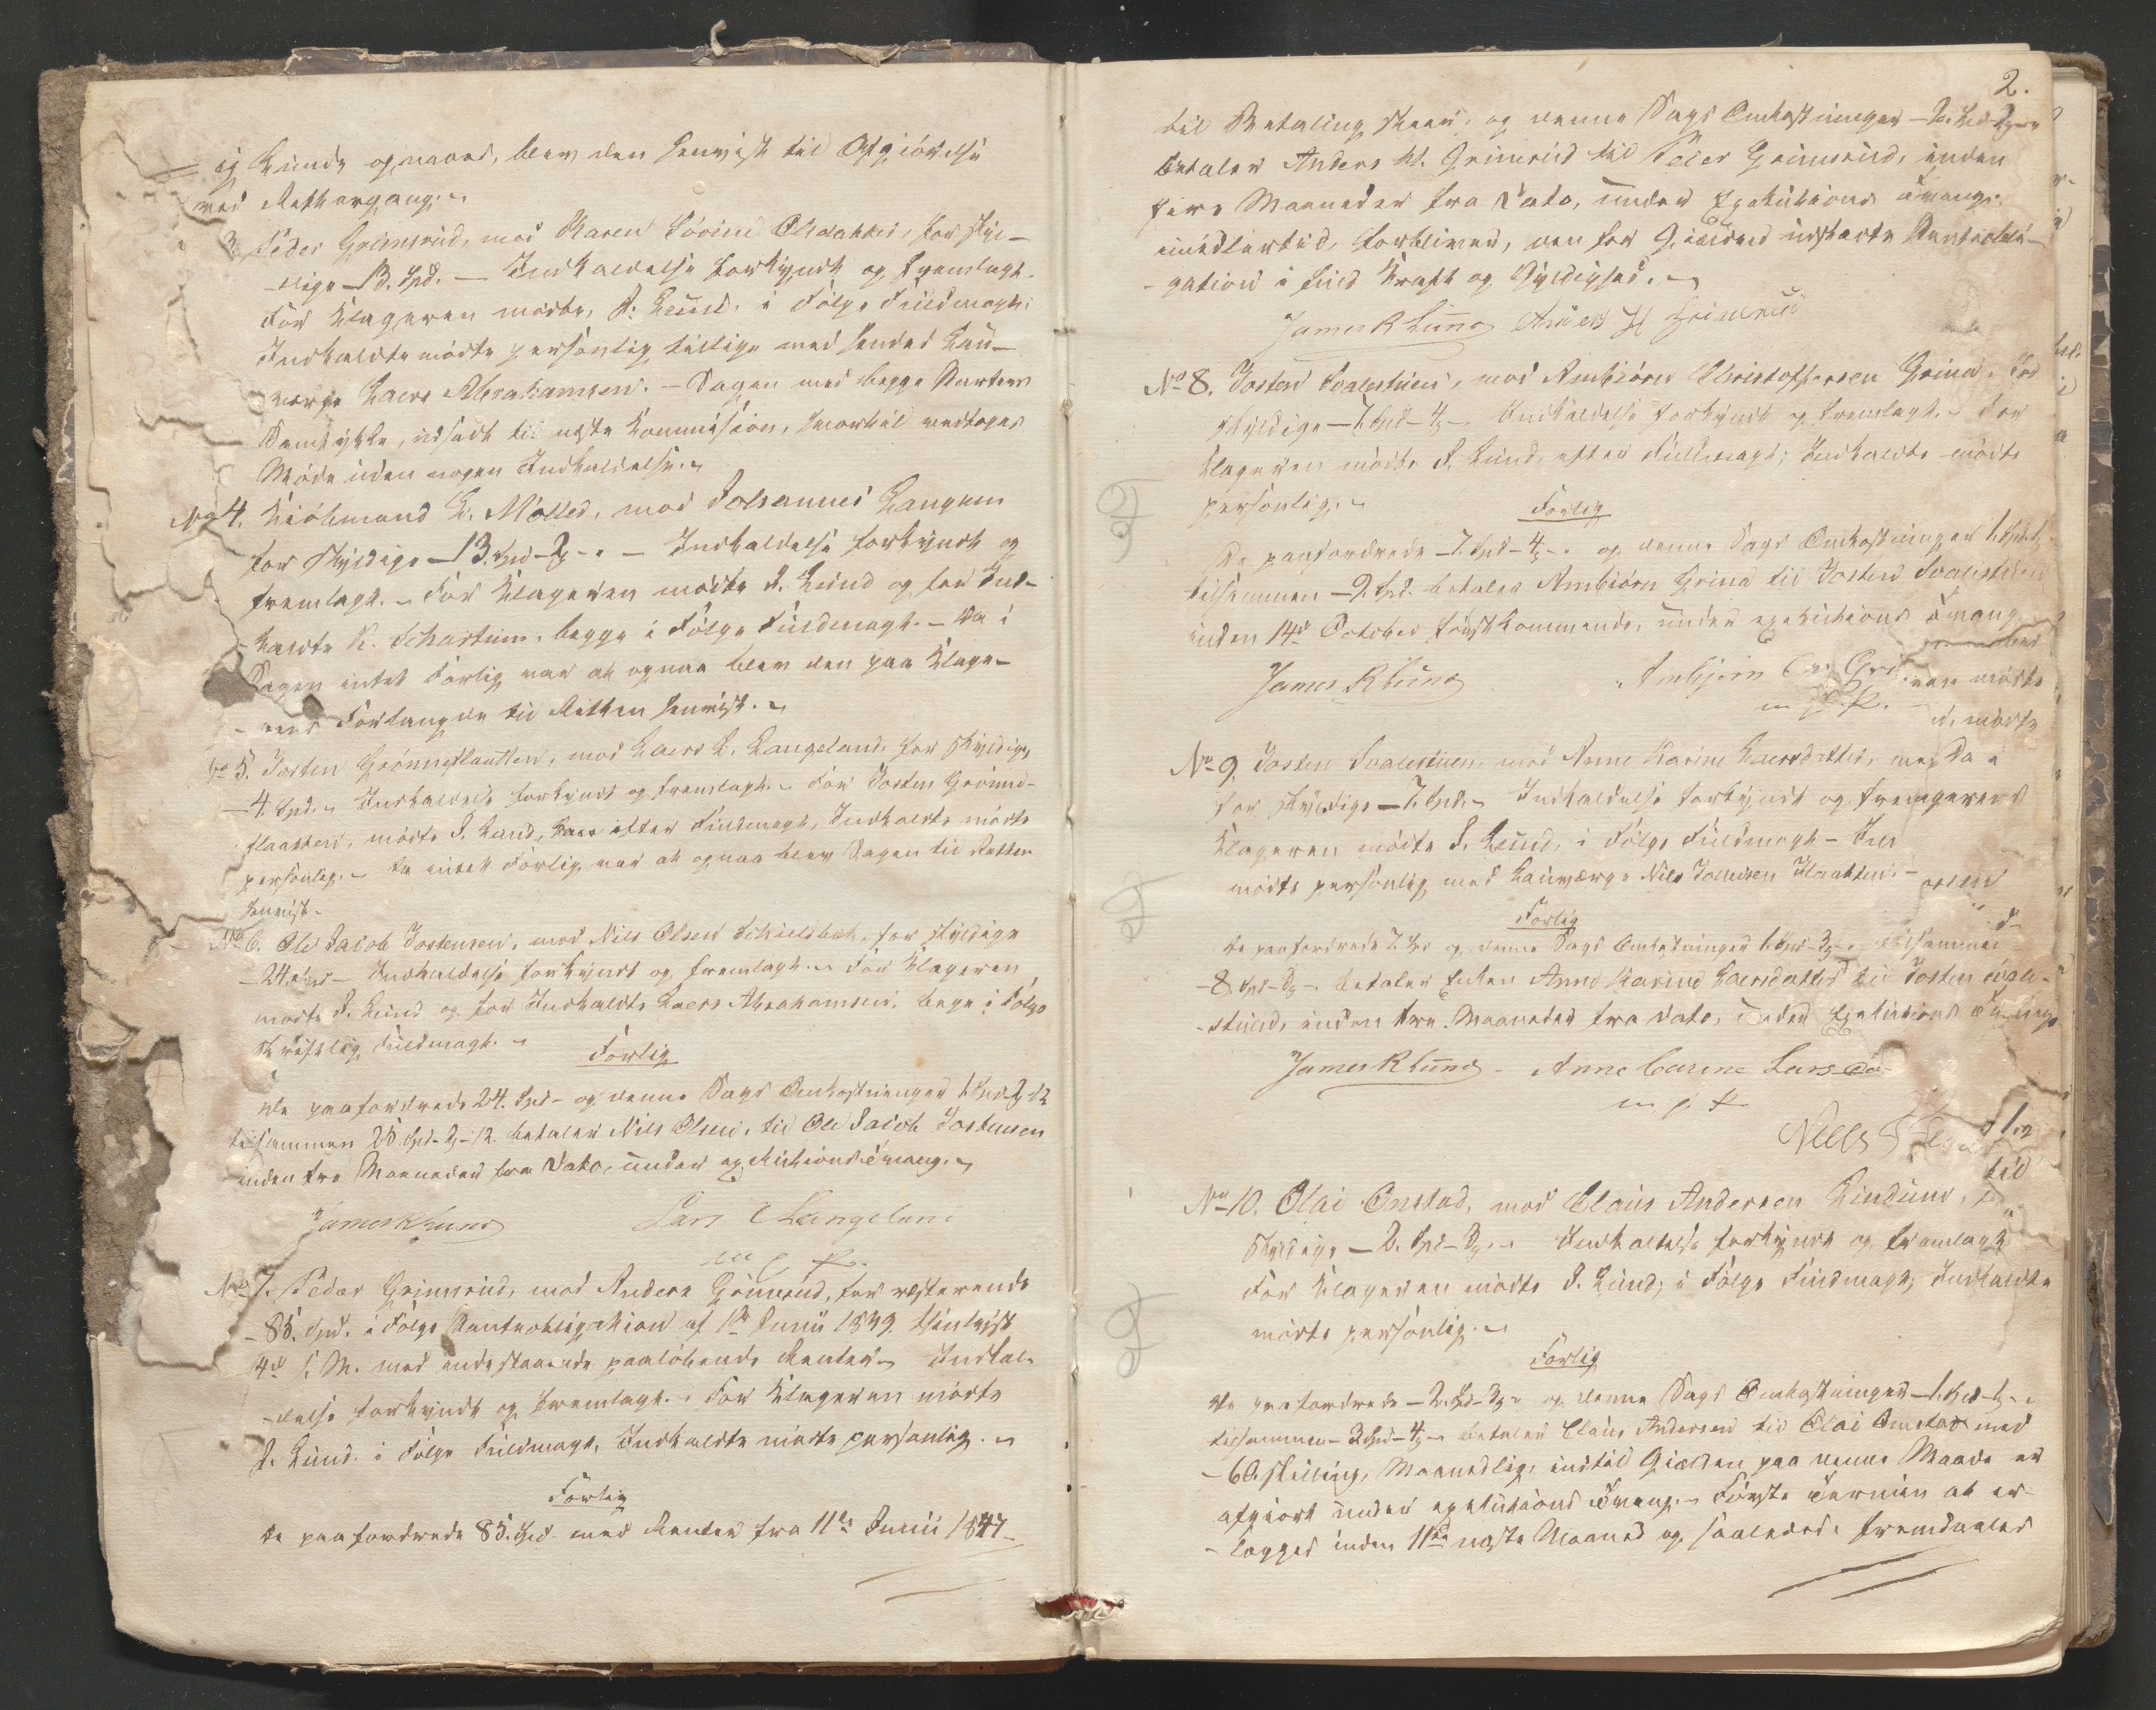 ei kunde opnaaes, blev den henvist til Afgjörelse
ved Rettergang.
3. Peder Grimsrud, mod Karen Sörine Olsdatter, for skyl-
-dige 13. Spd. — Indkaldelse forkyndt og fremlagt.
For Klageren mödte, J. Lund, i Fölge Fuldmagt;
Indkaldte mödte personlig tillige med hendes Lau-
værge Laers Abrahamsen. — Sagen med begge Parters
Samtykke, udsadt til næste Kommision, hvortil vedtoges
Möde uden nogen Indkaldelse.
No 4. Kiöbmand L. Möller, mod Johannes Langum
for skyldige — 13. Spd — 2 — Indkaldelse forkyndt og
fremlagt. — For Klageren mödte J. Lund og for Ind-
-kaldte K. Schartum, begge i Fölge Fuldmagt. — Da i
Sagen intet Forlig var at opnaa blev den paa Klage-
-rens Forlangende til Retten henvist.
No 5. Josten Grönneflaatten, mod Laers L. Langeland, for skyldige
— 4. Spd. Indkaldelse forkyndt og fremlagt. — For Josten Grönne-
flaatten, mödte J. Lund, efter Fuldmagt, Indkaldte mödte
personlig. — Da intet Forlig var at opnaa blev Sagen til Retten
henvist.
No 6. Ole Jacob Jostensen, mod Nils Olsen for skyldige
— 24. Spd — Indkaldelse forkyndt og fremlagt. — For Klageren
mödte J. Lund og for Indkaldte Laers Abrahamsen, begge i Fölge
Skriftlig Fuldmagt.
Forlig
De paafordrede 24. Spd — og denne Sags Omkostninger 1. Spd — 2 — 12
tilsammen 25 Spd — 2 — 12 betaler Nils Olsen, til Ole Jacob Jostensen
inden tre Maaneder fra Dato, under exekutions Tvang.
James R Lund Lars Langeland
m. p. P.
No 7. Peder Grimsrud, mod Anders Grimsrud, for resterende
— 85. Spd. i Fölge Pantuobligation af 1te Junii 1839. thinlyst
4de s. M. med endestaaende paalöbende Renter. — Indkal-
-delse forkyndt og fremlagt. — For Klageren mödte
J. Lund i Fölge Fuldmagt, Indkaldte mödte personlig.
Forlig
De paafordrede 85. Spd med Renter fra 11te Junii 1847
2.
til Betaling skeer, og denne Sags Omkostninger — 2
betaler Anders H. Grimsrud til Peder Grimsrud, inden
fire Maaneder fra Dato, under Exekutions Tvang.
imidlertid, forbliver, den for Giælden udstædte Pantobli-
-gation i fuld Kraft og Gyldighed.
James R Lund Anders H Grimsrud
No 8. Josten Svalestuen, mod Ambiörn Christophersen Grina, for
skyldige — 7. Spd — 4 — Indkaldelse forkyndt og fremlagt. — For
Klageren mödte J. Lund, efter Fuldmagt; Indkaldte mödte
personlig.
Forlig
De paafordrede — 7. Spd — 4 — og denne Sags Omkostninger 1. Spd 1
tilsammen — 9. Spd. betaler Ambiörn Grina til Josten Svalestuen
inden 14de October förstkommende, under exekutions Tvang
James R Lund Ambjørn Gri
m. p. P. mödte
mödte
No 9. Josten Svalestuen, mod Anne Karine Laersdatter, Da i
for skyldige — 7. Spd. — Indkaldelse forkyndt og frem
Klageren mödte J. Lund, i Fölge Fuldmagt — Ind
mödte personlig med Lauværge Nils Flaatten. —
Forlig
De paafordrede 7. Spd og denne Sags Omkostninger 1. Spd — 3 — tilsammen
— 8. Spd — 3 — betaler Enken Anne Karine Laersdatter til Josten Svale-
-stuen, inden tre Maaneder fra Dato, under Exekutions Tvang.
James R Lund — Anne Carine Lars Da
m. p. P.
Neels
til
No 10. Olai Onstad, mod Claus Andersen Lindum,
skyldige — 2. Spd — 3. — Indkaldelse forkyndt og fremlagt
For Klageren mödte J. Lund; i Fölge Fuldmagt, Indkaldte
mödte personlig.
Forlig
De paafordrede — 2. Spd — 3 — og denne Sags Omkostninger — 1. Spd — 1 —
tilsammen — 3 Spd — 4 — betaler Claus Andersen til Olai Onstad med
— 60. skilling, Maanedlig, indtil Giælden paa denne Maade er
afgiort under exekutions Tvang. — Förste Termin at er-
-lægges inden 11te næste Maaned og saaledes fremdeeles